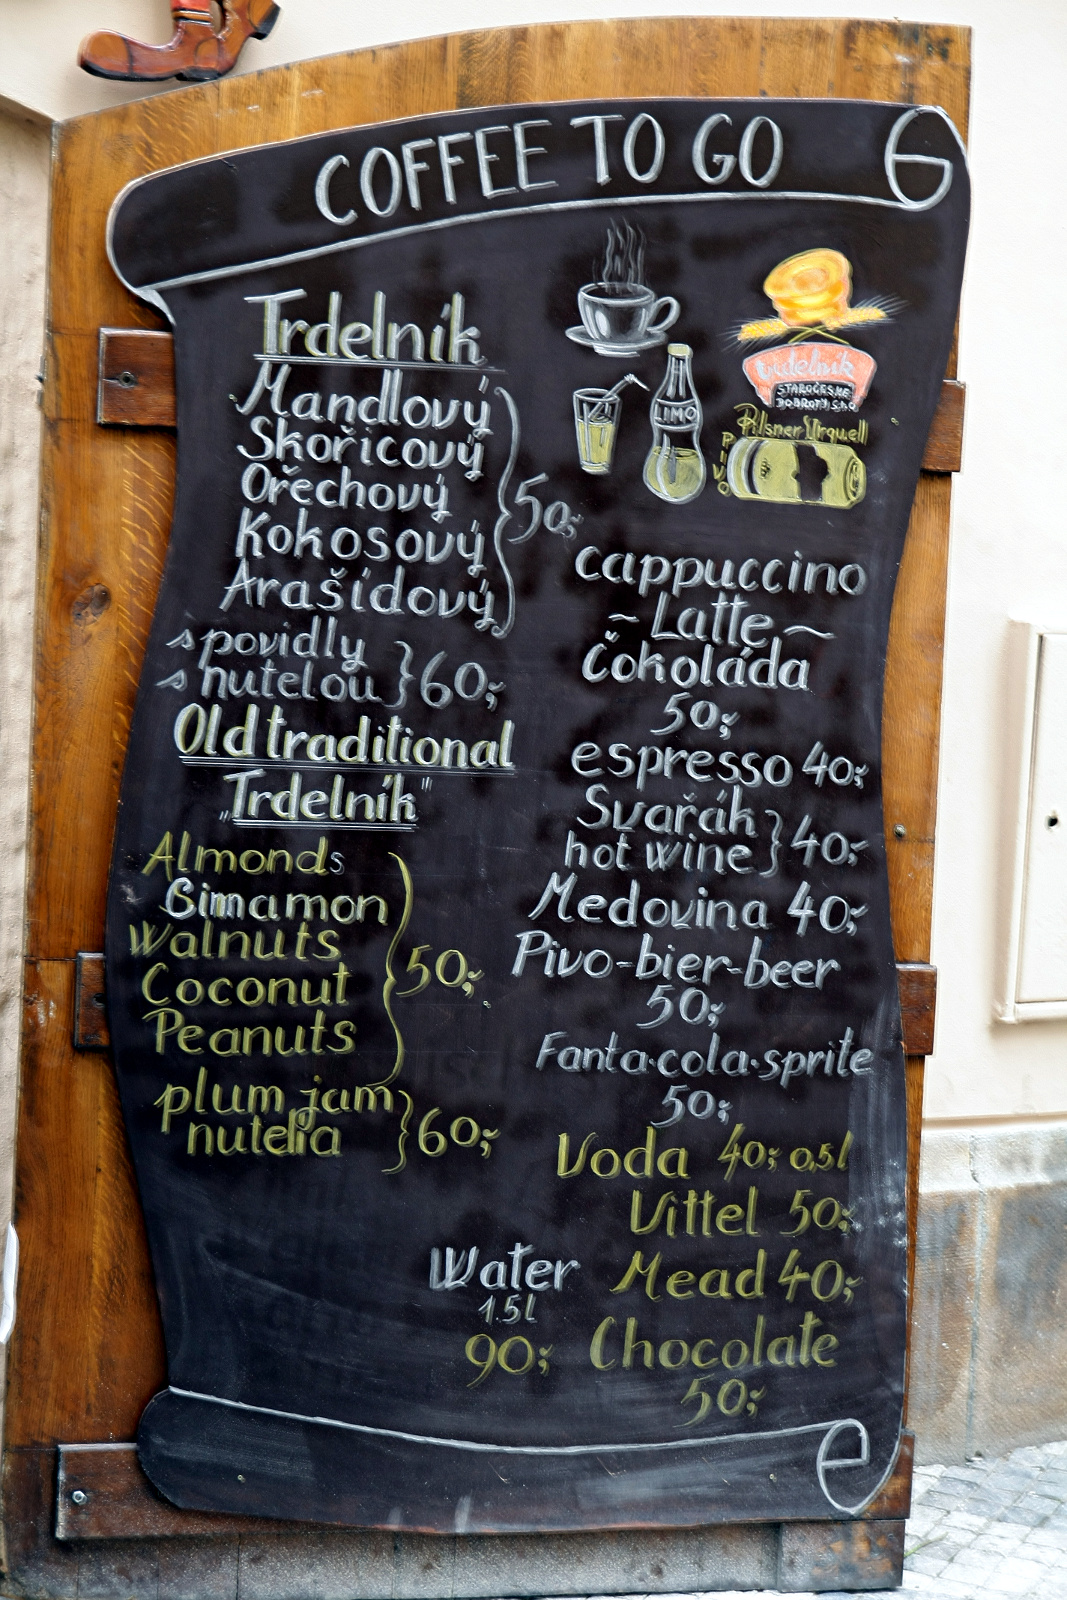 COFFEE TO GO
Trdelník
Mandlový
Skořicový
Ořechový
Kokosový
Arašídový
50,-
s povidly
s nutelou
60,-
Old traditional
„Trdelník"
Almonds
Cinnamon
Walnuts
Coconut
Peanuts
50,-
plum jam
nutella
60,-
LIMO
Trdelník
STAROČESKÉ
DOBROTY S.R.O
Pilsner Urquell
PIVO
Cappuccino
~ Latte ~
Čokoláda
50,-
espresso 40,-
Svařák
hot wine
40,-
Medovina 40,-
Pivo-bier-beer
50,-
Fanta·cola·sprite
50,-
Voda 40,- 0,5l
Vittel 50,-
Mead 40,-
Water
1.5l
90,-
Chocolate
50,-